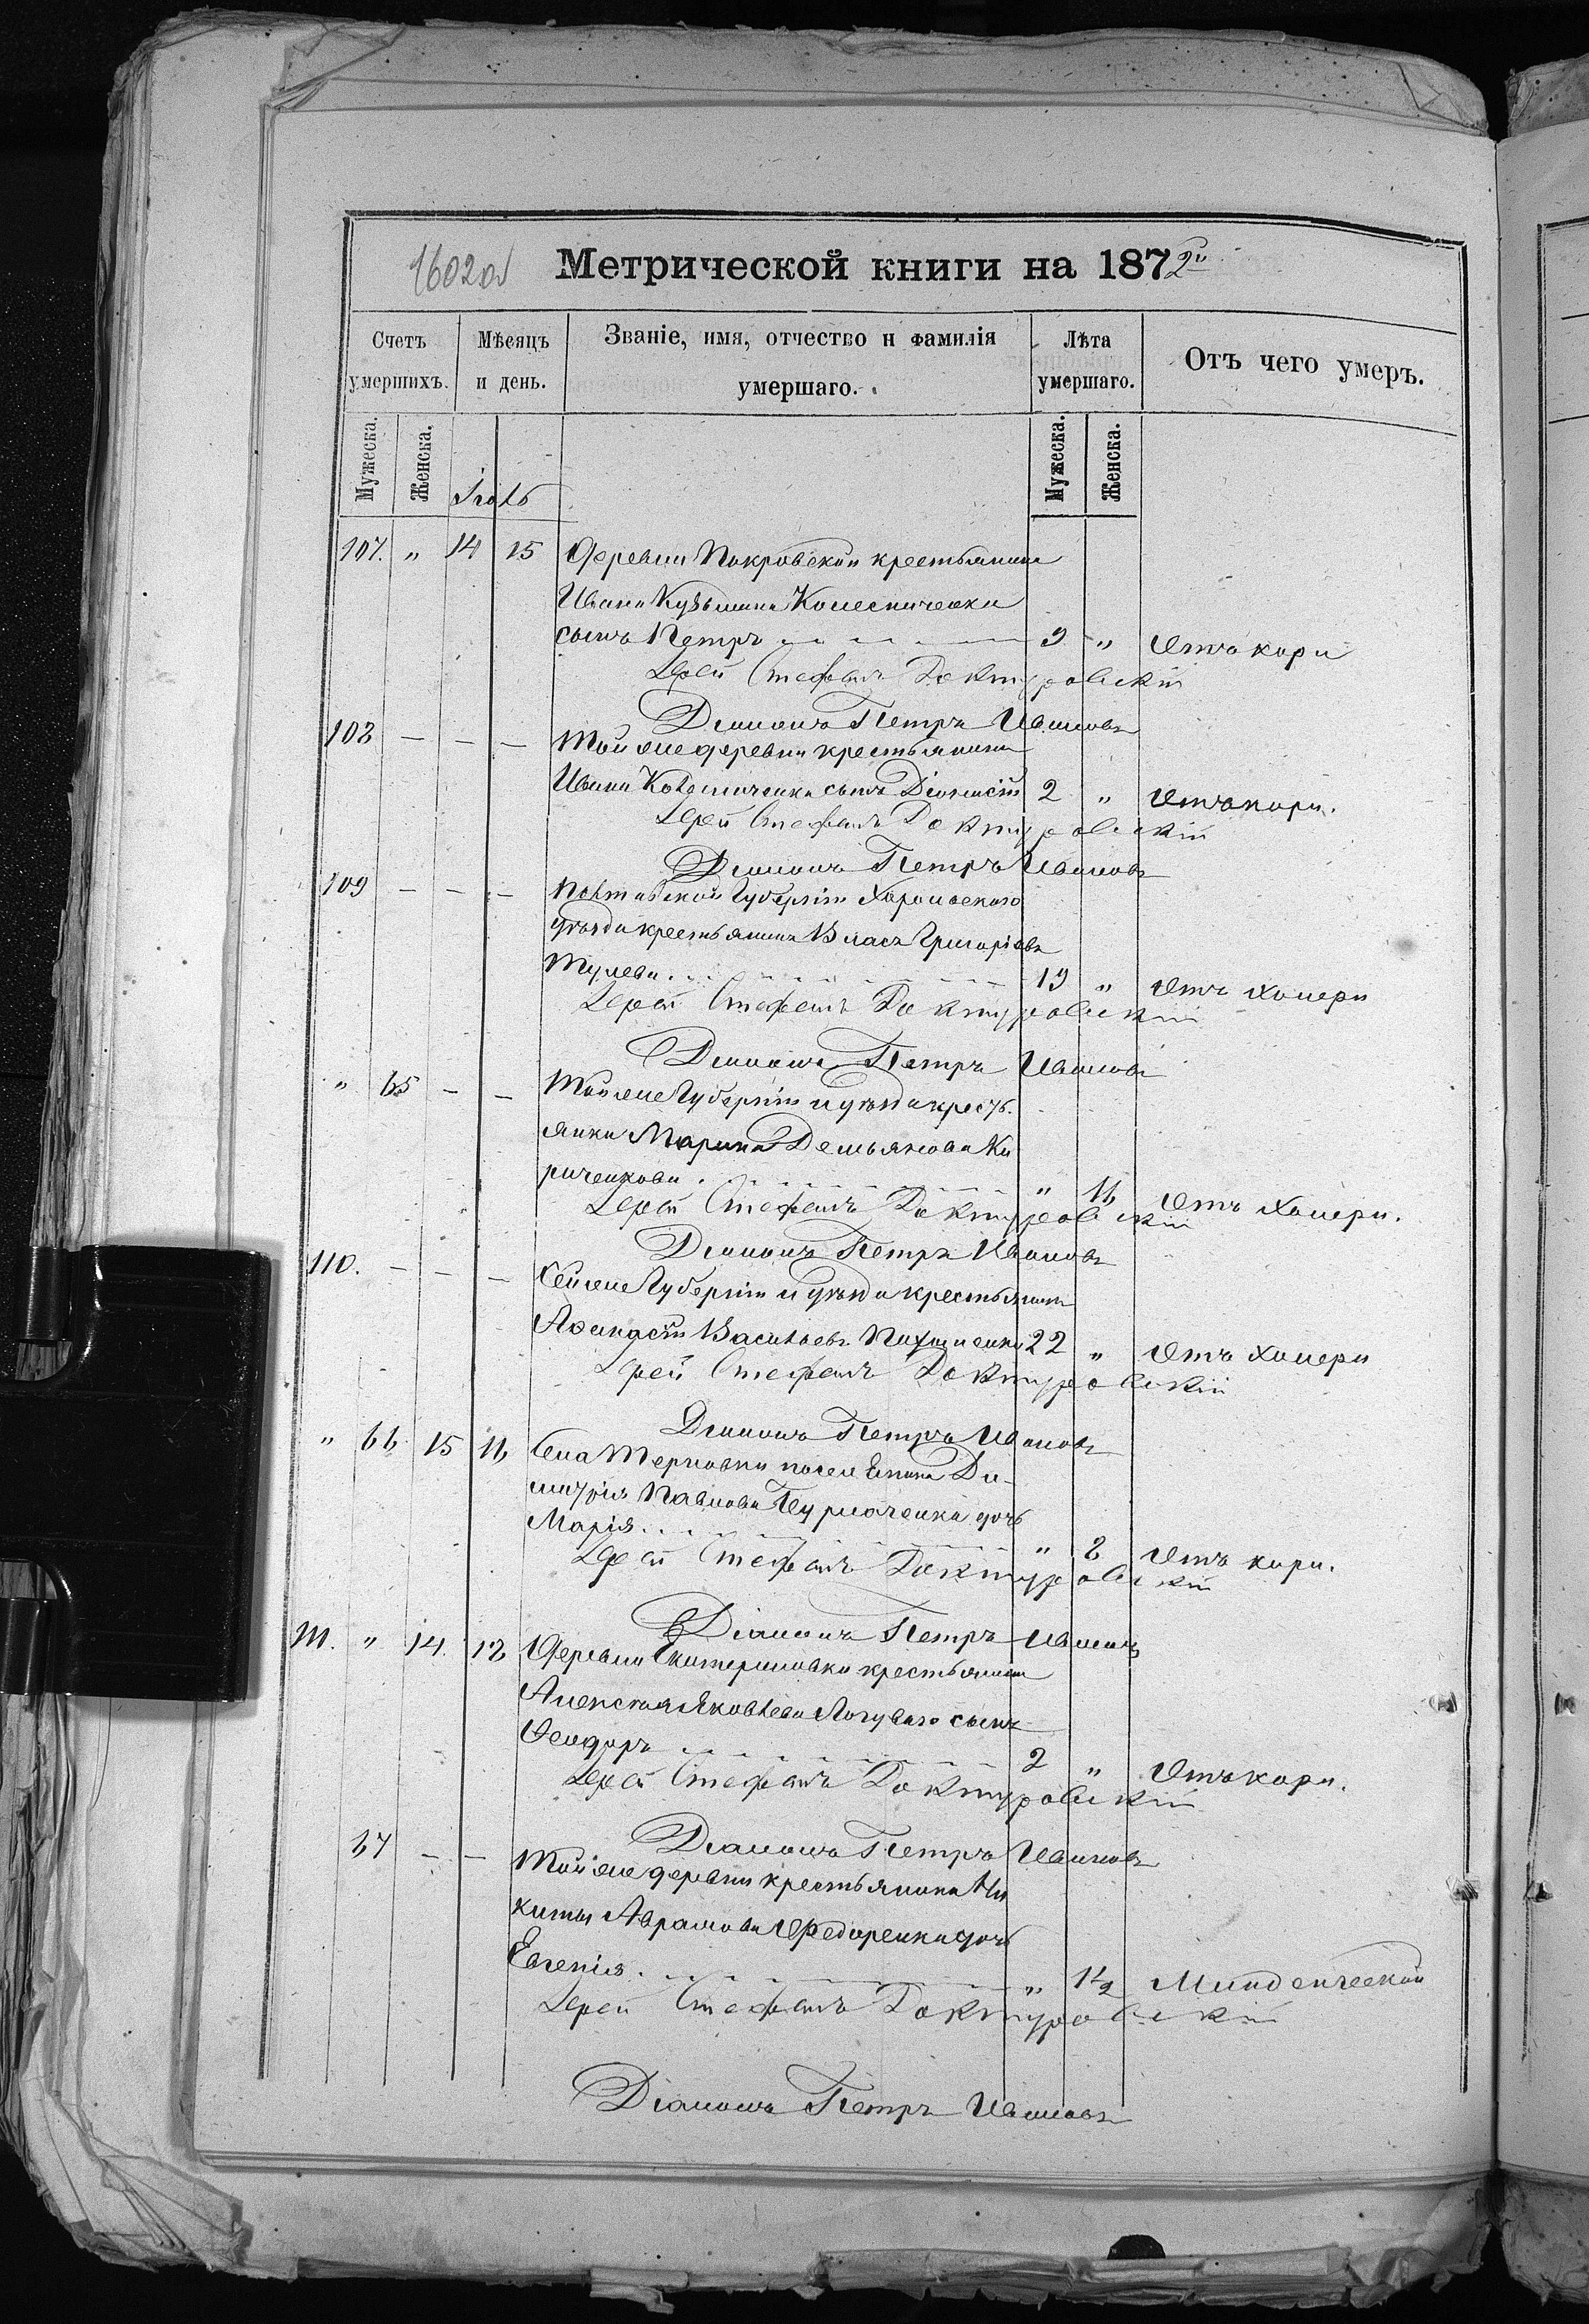 1602об
Метрической книги на 1872й
Счетъ умершихъ.
Мѣсяцъ и день.
Званіе, имя, отчество и фамилія умершаго.
Лѣта умершаго.
Отъ чего умеръ.
Мужеска. Женска. Іюль Мужеска. Женска.
107. " 14 15 Деревни Покровской крестьянина
Ивана Кузьмина Колесниченка
сынъ Петръ 3 " Отъ кори
Іерей Стефанъ Доктуровскій
Діаконъ Петръ Ивановъ
108 — — — Той же деревни крестьянина
Ивана Колесниченка сынъ Діонисій 2 " Отъ кори.
Іерей Стефанъ Доктуровскій
Діаконъ Петръ Ивановъ
109 — — — Полтавской Губерніи Хорольскаго
уѣзда крестьянинъ Власъ Григоріевъ
19 " Отъ холеры
Іерей Стефанъ Доктуровскій
Діаконъ Петръ Ивановъ
" 65 — — Той же Губерніи и уѣзда кресть
янка Марина Демьянова Ки
риченкова " 16 Отъ холеры.
Іерей Стефанъ Доктуровскій
Діаконъ Петръ Ивановъ
110. — — — Сей же Губерніи и уѣзда крестьянинъ
Аѳанасій Васильевъ 22 " Отъ холеры
Іерей Стефанъ Доктуровскій
Діаконъ Петръ Ивановъ
" 66 15 16 Села Терновки поселянина Ди-
митрія Павлова дочь
Марія " 2 Отъ кори.
Іерей Стефанъ Доктуровскій
Діаконъ Петръ Ивановъ
111. " 14 Деревни Екатериновки крестьянина
Алексея Яковлева сынъ
Феодоръ 2 " Отъ кори.
Іерей Стефанъ Доктуровскій
Діаконъ Петръ Ивановъ
67 — — Той же деревни крестьянина Ни
киты Аврамова Федоренка дочь
Евгенія " 1½ Младенческой
Іерей Стефанъ Доктуровскій
Діаконъ Петръ Ивановъ